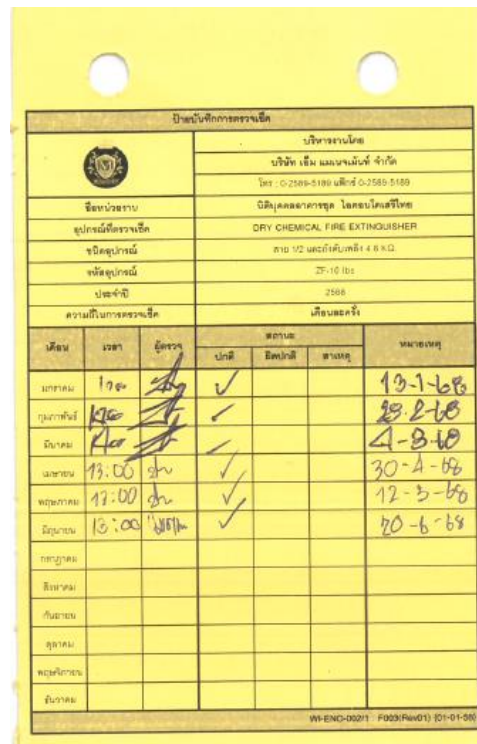 ป้ายบันทึกการตรวจเช็ค
บริหารงานโดย
บริษัท เอ็ม แมเนจเม้นท์ จำกัด
โทร : 0-2589-5189 แฟ็กซ์ 0-2589-5189
ชื่อหน่วยงาน นิติบุคคลอาคารชุด ไอคอนโดเสรีไทย
อุปกรณ์ที่ตรวจเช็ค DRY CHEMICAL FIRE EXTINGUISHER
ชนิดอุปกรณ์ สาย 1/2 และถังดับเพลิง 4.6 KG.
รหัสอุปกรณ์ ZF-10 lbs
ประจำปี 2568
ความถี่ในการตรวจเช็ค เดือนละครั้ง
เดือน เวลา ผู้ตรวจ สถานะ หมายเหตุ
ปกติ ผิดปกติ สาเหตุ
มกราคม 13-1-68
กุมภาพันธ์ 28-2-68
มีนาคม 4-3-68
เมษายน 13:00 30-4-68
พฤษภาคม 13:00 12-5-68
มิถุนายน 13:00 20-6-68
กรกฎาคม
สิงหาคม
กันยายน
ตุลาคม
พฤศจิกายน
ธันวาคม
WI-ENG-002/1 : F003(Rev01) (01-01-56)